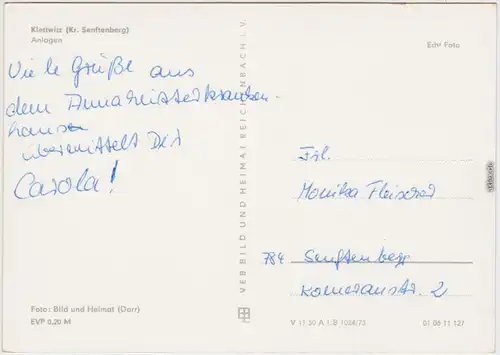 Klettwitz (Kr. Senftenberg)
Anlagen
Echt Foto
Viele Grüße aus
dem
übermittelt Dir
Carola!
Frl.
Monika Fleischer
784 Senftenberg
2
VEB BILD UND HEIMAT REICHENBACH I. V.
Foto: Bild und Heimat (Darr)
EVP 0,20 M
V 11 50 A 1/B 1034/73
01 06 11 127